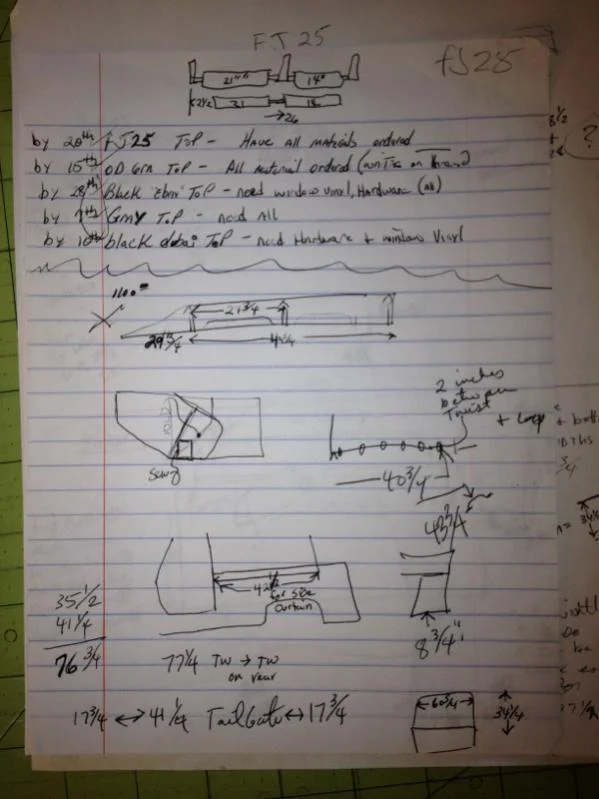 FJ 25
fJ 28
21" 18"
2 1/2 31 18
→ 26
by 20th FJ25 Top - Have All materials ordered
by 15th OD Grn Top - All material ordered
by 28th Black Top - need window vinyl, Hardware
by 7th Gray Top - need All
by 10th black dubai Top - need Hardware + window Vinyl
21 3/4
2 inches
between
Twist
+ Loop
Sewg
40 3/4
43 3/4
42
for side
curtain
35 1/2
41 1/4
76 3/4
77 1/4 TW → TW
on rear
8 3/4"
17 3/4 ↔ 41 1/4 TailGate ↔ 17 3/4
60 3/4
34 1/4